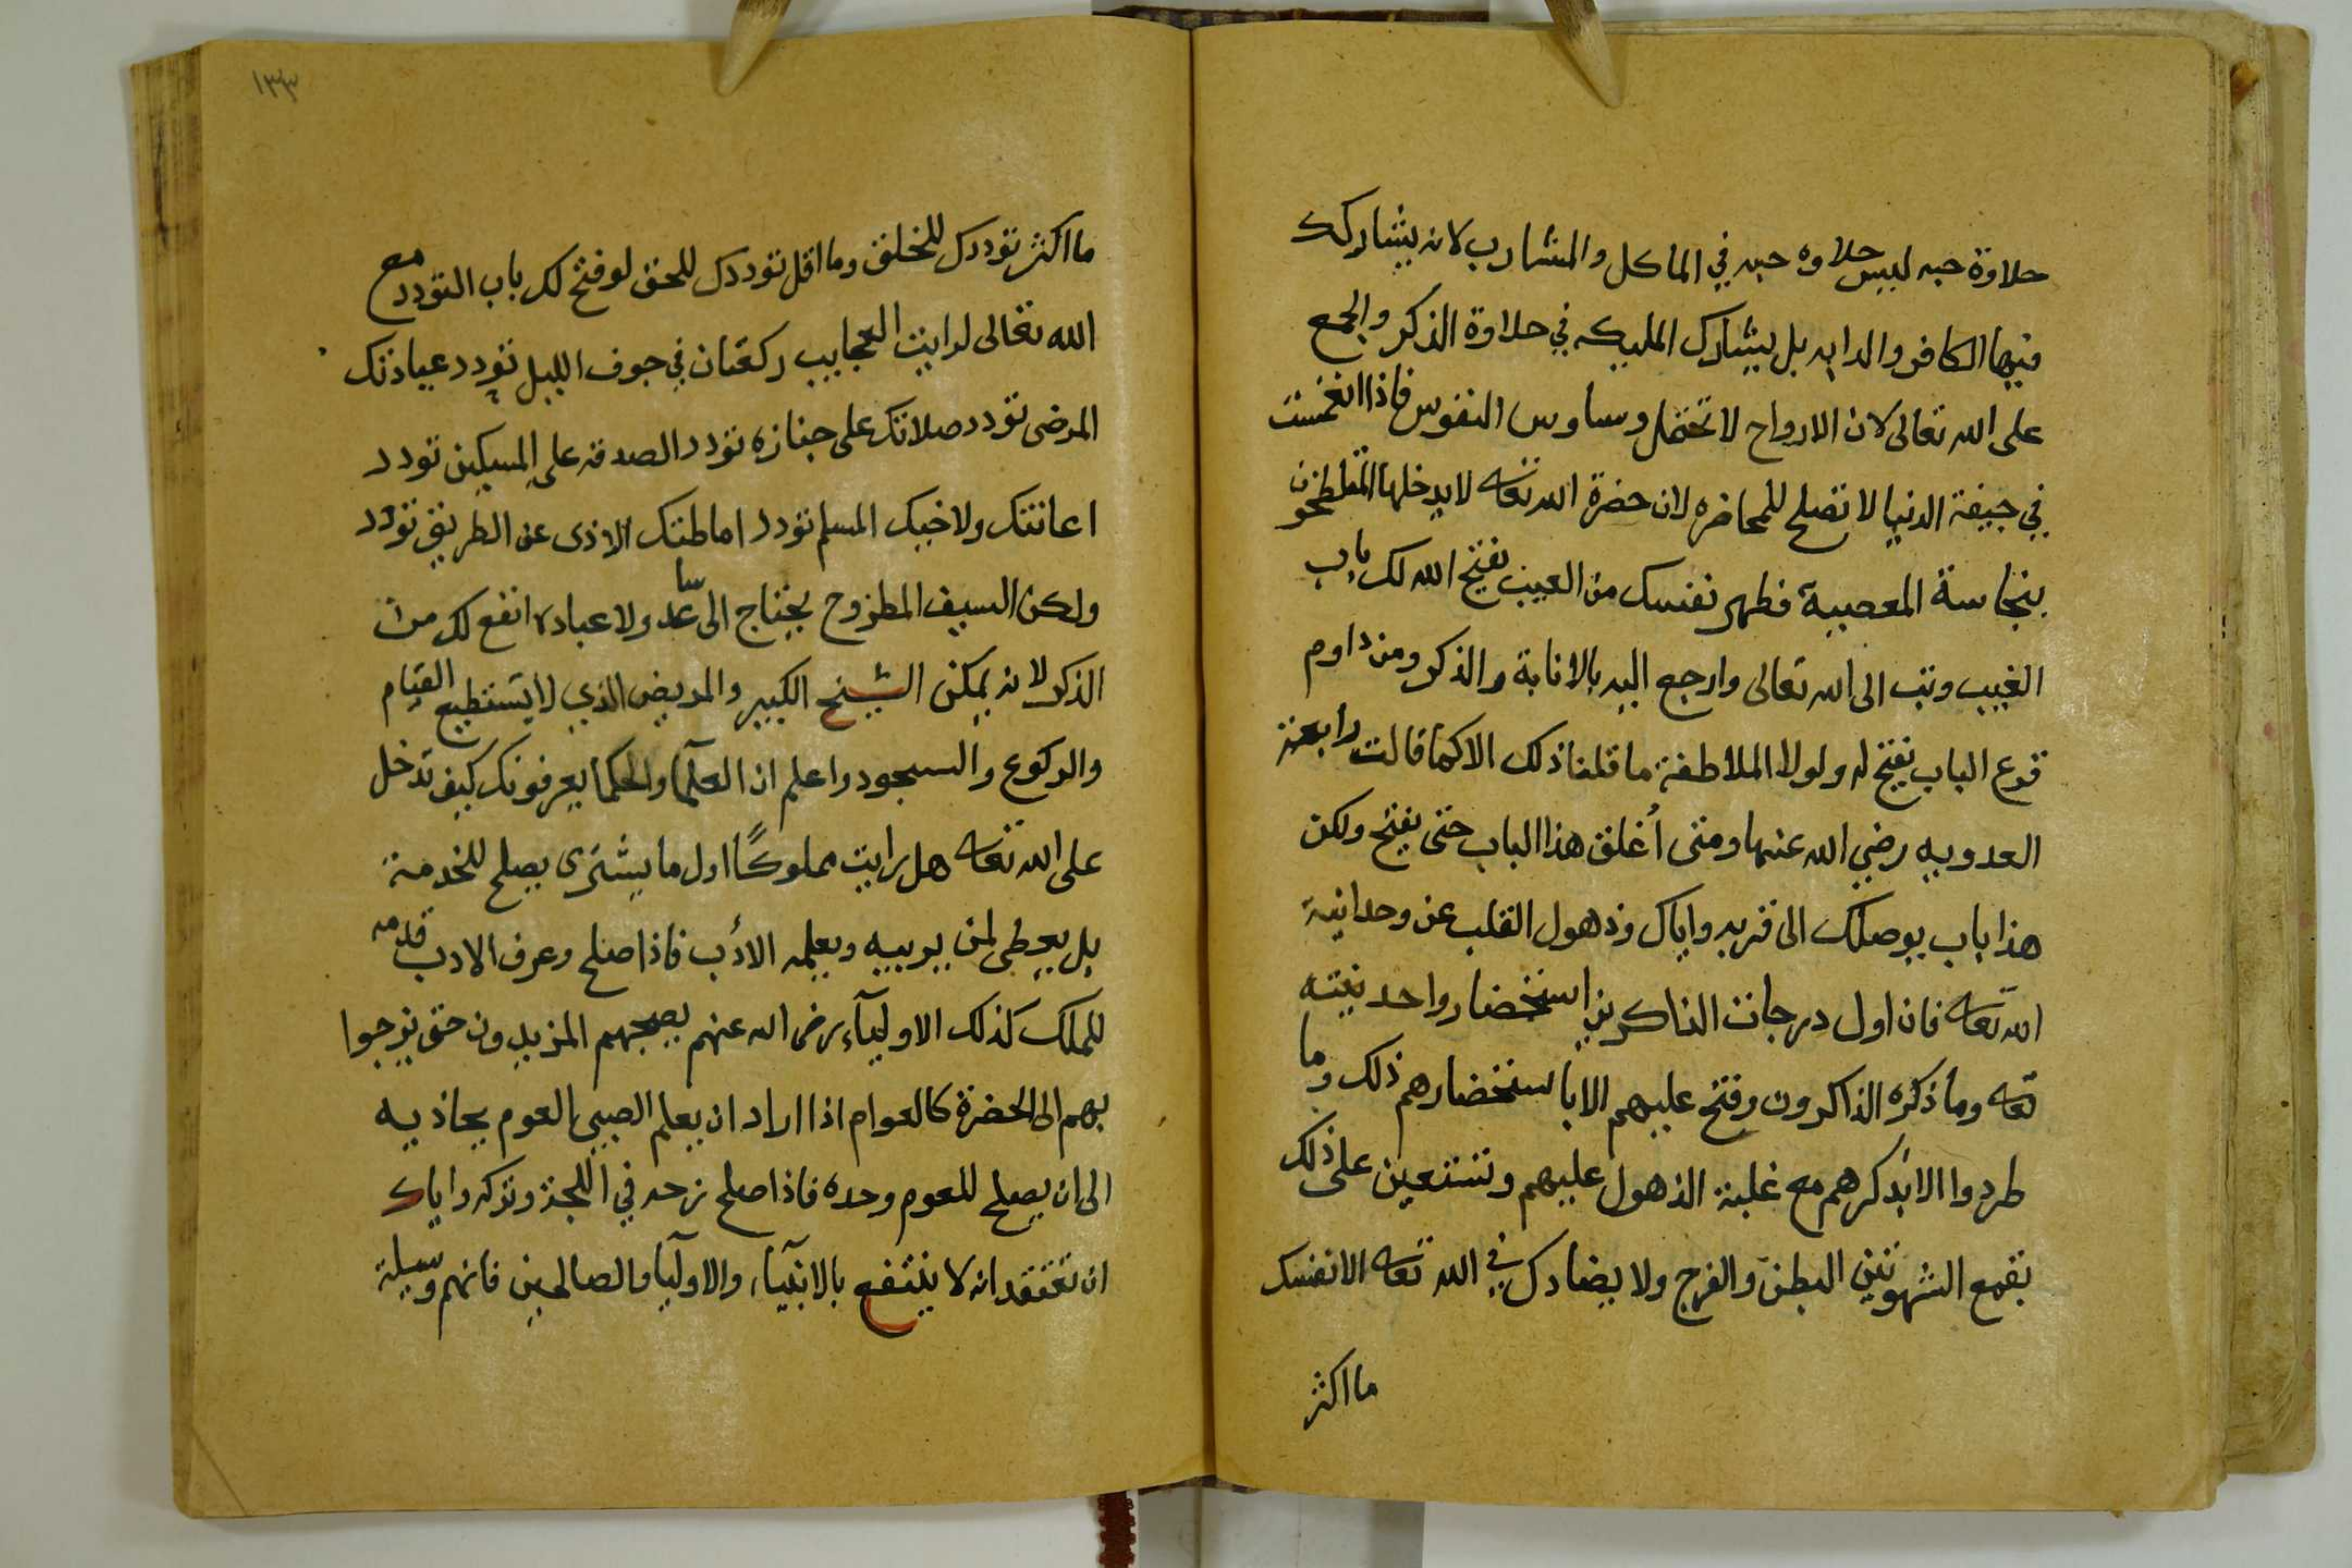 حلاوة حبه ليس حلاوه حبه في الماكل والمشارب لانه يشاركك
فيها الكافر والدابه بل يشارك المليكه في حلاوة الذكر والجمع
على الله تعالى لان الارواح لا تحتمل وساوس النفوس فاذا انغمست
في جيفة الدنيا لا تصلح للمحاضره لان حضرة الله تعالى لا يدخلها المتلطخون
بنجاسة المعصية فطهر نفسك من العيب يفتح الله لك باب
الغيب وتب الى الله تعالى وارجع اليه بالانابة والذكر ومن داوم
قرع الباب يفتح له ولولا الملاطفة ما قلنا ذلك الا كما قالت رابعة
العدويه رضي الله عنها ومتى أغلق هذا الباب حتى يفتح ولكن
هذا باب يوصلك الى قربه واياك وذهول القلب عن وحدانية
الله تعالى فان اول درجات الذاكرين استحضار واحديته
تعالى وما ذكره الذاكرون وفتح عليهم الا باستحضارهم ذلك وما
طردوا الا بذكرهم مع غلبة الذهول عليهم وتستعين على ذلك
بقمع الشهوتين البطن والفرج ولا يضادك في الله تعالى الا نفسك
ما اكثر
١٣٣
ما اكثر توددك للخلق وما اقل توددك للحق لو فتح لك باب التودد مع
الله تعالى لرايت العجايب ركعتان في جوف الليل تودد عيادتك
المرضى تودد صلاتك على جنازه تودد الصدقه على المسكين تودد
اعانتك ولاخيك المسلم تودد اماطتك الاذى عن الطريق تودد
ولكن السيف المطروح يحتاج الى ساعد ولا عبادة انفع لك من
الذكر لانه يمكن الشيخ الكبير والمريض الذي لا يستطيع القيام
والركوع والسجود واعلم ان العلما والحكما يعرفونك كيف تدخل
على الله تعالى هل رايت مملوكًا اول ما يشترى يصلح للخدمة
بل يعطى لمن يربيه ويعلمه الأدب فاذا صلح وعرف الادب قدمه
للملك كذلك الاوليآء رضى الله عنهم يصحبهم المريدون حتى يزجوا
بهم الى الحضرة كالعوام اذا اراد ان يعلم الصبي العوم يحاذيه
الى ان يصلح للعوم وحده فاذا صلح زجه في اللجة وتركه واياك
ان تعتقد انه لا ينتفع بالانبيآء والاوليآ والصالحين فانهم وسيلة